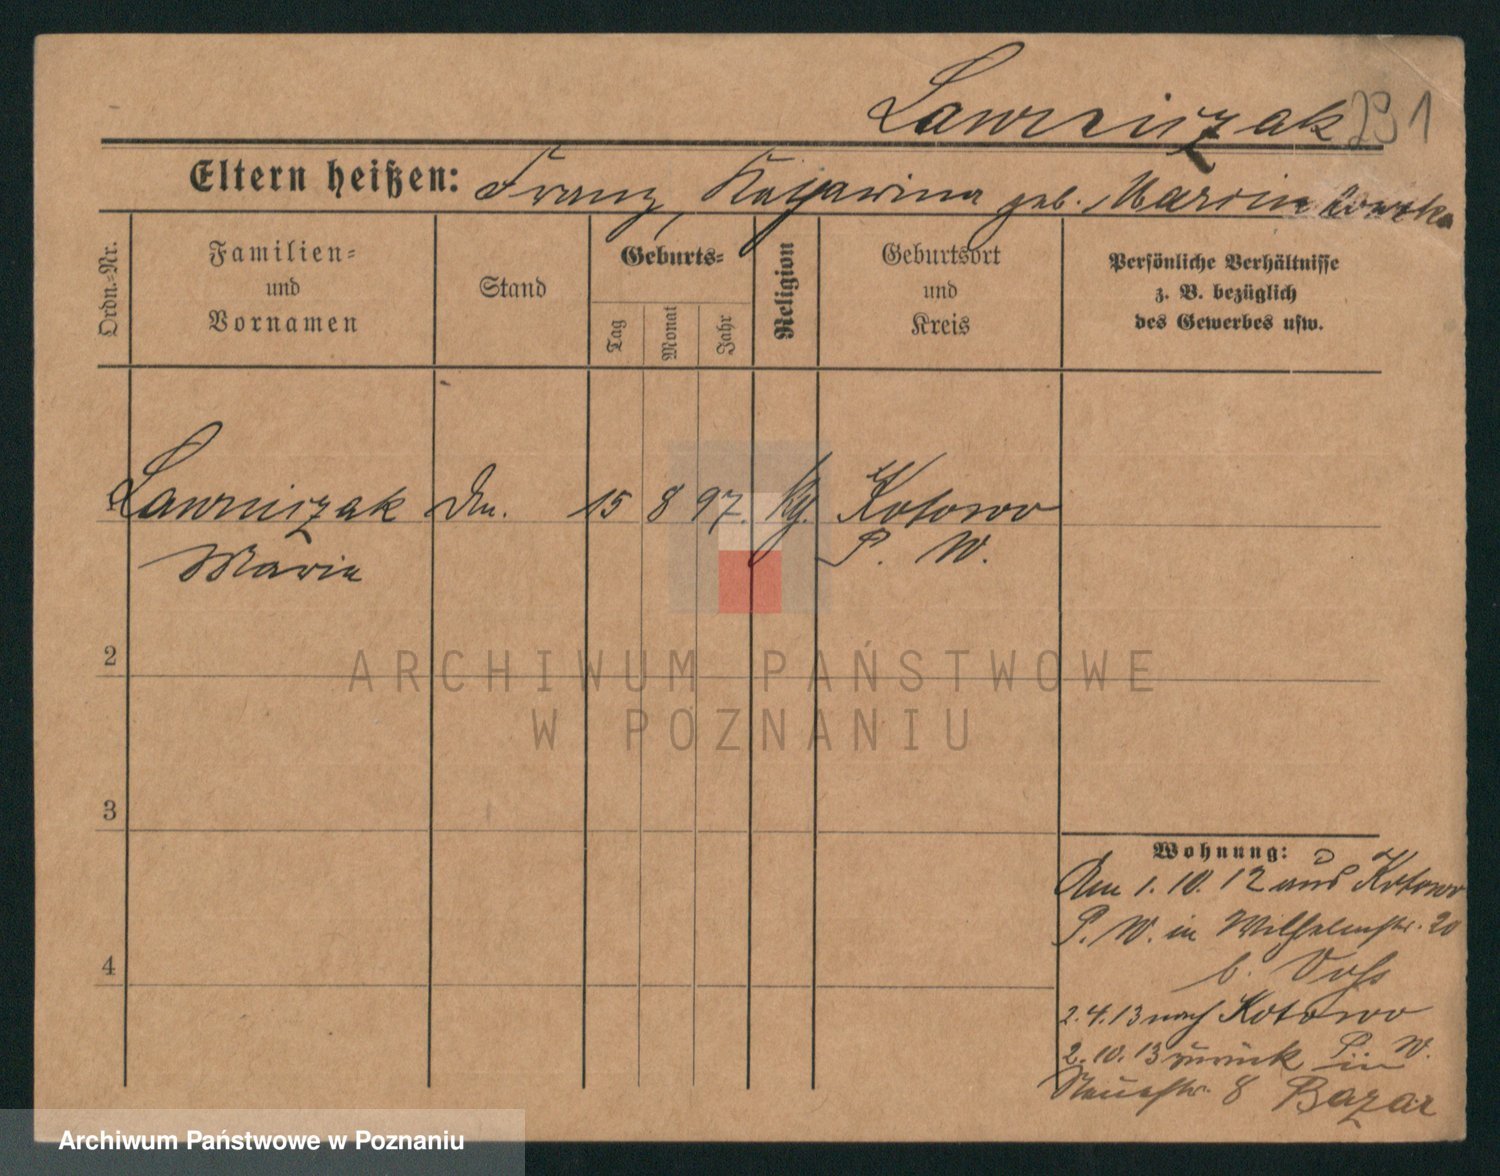 Lawrniszak 231
Eltern heißen: Franz, Katharina geb. Marcinkowska
Ordn.-Nr.
Familien=
und
Vornamen
Stand
Geburts=
Tag
Monat
Jahr
Religion
Geburtsort
und
Kreis
Persönliche Verhältnisse
z. B. bezüglich
des Gewerbes usw.
Lawrniszak
Marie
15 8 97.
Kotowo
P. W.
2
3
4
Wohnung:
Am 1. 10. 12 aus Kotowo
P. W. in Wilhelmstr. 20
b. Voss
2.4.13 nach Kotowo
P. W.
2.10.13 zurück in
Neuestr. 8 Bazar
ARCHIWUM PAŃSTWOWE
W POZNANIU
Archiwum Państwowe w Poznaniu